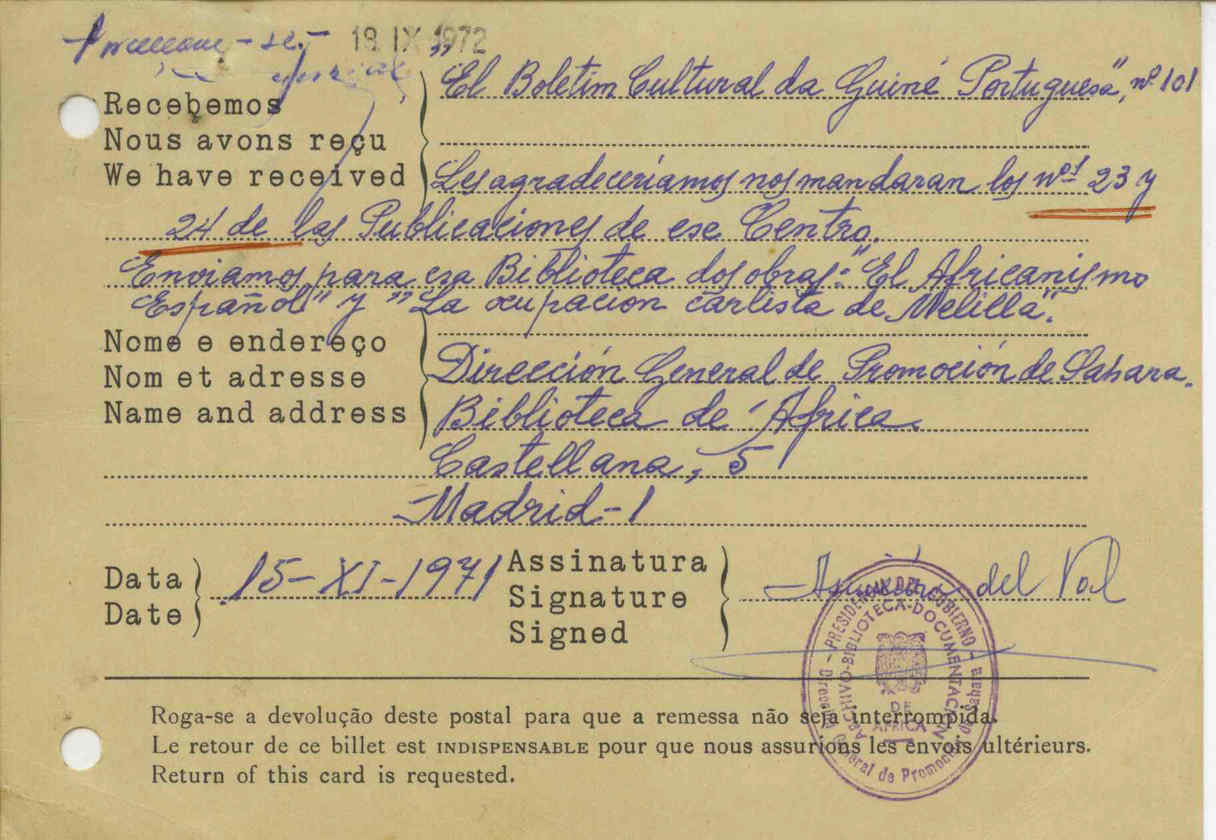 18 IX 1972
Recebemos
Nous avons reçu
We have received
"El Boletim Cultural da Guiné Portuguesa", nº 101
Les agradeceríamos nos mandaran los nos 23 y
24 de las Publicaciones de ese Centro.
Enviamos para esa Biblioteca dos obras: "El Africanismo
Español" y "La ocupacion carlista de Melilla".
Nome e endereço
Nom et adresse
Name and address
Dirección General de Promoción de Sahara.
Biblioteca de África.
Castellana, 5
Madrid-1
Data
Date
15-XI-1971
Assinatura
Signature
Signed
del Val
PRESIDENCIA DEL GOBIERNO
Dirección General de Promoción de Sahara
ARCHIVO-BIBLIOTECA-DOCUMENTACION
DE
AFRICA
Roga-se a devolução deste postal para que a remessa não seja interrompida.
Le retour de ce billet est INDISPENSABLE pour que nous assurions les envois ultérieurs.
Return of this card is requested.